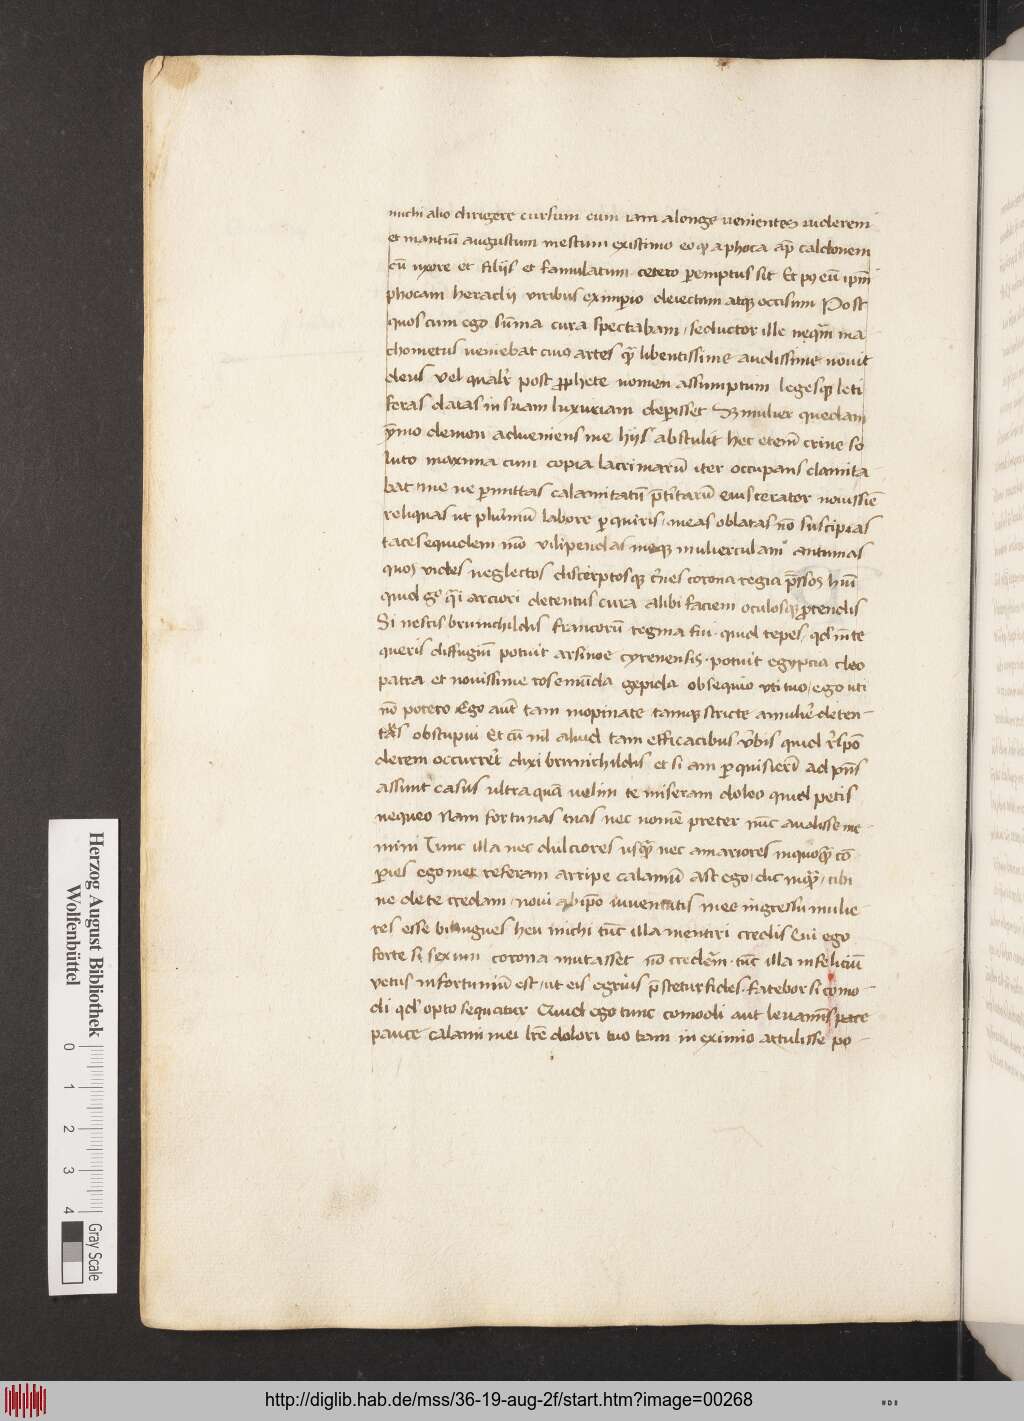 michi alio dirigere cursum cum iam alonge venientes viderem
et mantiū augustum mestum existimo eo qͥ a phoca apͩ calcdonem
cū uxore et filijs et famulatum cetero ꝑemptus sit Et pꝯ eū ipm̄
phocam heraclij viribus eximperio deiectum atqꝫ occisum Post
quos cum ego sūma cura spectabam / seductor ille neqͣm ma
chometus veniebat cuiꝯ artes qͣ libentissime audissime novit
deus vel qualr̄ post ꝓphete nomen assumptum legesqꝫ leti
feras datas in suam luxuriam depisset Sꝫ mulier quedam
ymo demon adveniens me hijs abstulit hec eteni̅ crine so
luto maxima cum copia lacrimarū iter occupans clamita
bat / me ne ꝑmittas calamitatū p̄titarū eiuscerator novissie̅
reliquas ut plurimū labore ꝑquiris / meas oblatas nō suscipias
taces equidem nō vilipendas meqꝫ mulierculam autumas
quos vides neglectos discerptosqꝫ cr̄nes corona regia p̄ssos hūi
quid gͦ qͣsi arciori detentus cura alibi faciem oculosqꝫ ꝓtendis
Si nescis brunichildis francorū regina fui · quid tepes / qd̕ īn te
queris diffugiū potuit arsinoe cyrenensis · potuit egyptia cleo
patra et novissime rosemūda gepida obsequio uti tuo / ego uti
nō potero Ego aut̄ tam inopinate tamqꝫ stricte a muliere deten-
tus obstupui Et cū nil aliud tam efficacibus v̄bis quid r̄spō
derem occurrer̄ dixi brunichildis et si am ꝑquisieri̅ ad pn̄s
assunt casus ultra quā velim te miseram doleo quid petis
nequeo Nam fortunas tuas nec nomē preter nūc audisse me-
mini Tunc illa nec dulciores usqͣ nec amariores inquoqͣ cō
ꝑies egomet referam arripe calamū ast ego / dic inqͣ / tibi
ne de te credam / novi ab ip̄o iuventutis mee ingressu mulie-
res esse bilingues heu michi tūc illa mentiri credis Cui ego
forte si sexum corona mutasset nō credere̅ · tūc illa infeliciū
vetus infortuniū est / ut eis egriꝰ p̄stetur fides · fatebor si como-
di qd̕ opto sequatur Quid ego tunc comodi aut levamīs pace
pauce calami mei lr̄e dolori tuo tam in eximio attulisse po-
Herzog August Bibliothek
Wolfenbüttel
0 1 2 3 4
Gray Scale
http://diglib.hab.de/mss/36-19-aug-2f/start.htm?image=00268